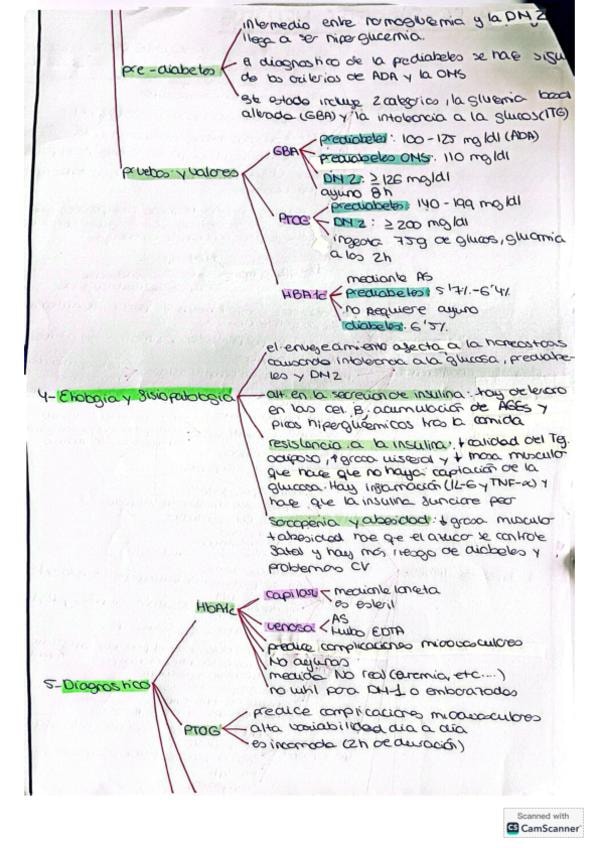 intermedio entre normoglucemia y la DM 2
llega a ser hiperglucemia.
pre-diabetes
El diagnostico de la prediabetes se hace
de los criterios de ADA y la OMS
Este estado incluye 2 categorias, la glucemia basal
alterada (GBA) y la intolerancia a la glucosa (ITG)
pruebas y valores
GBA
prediabetes: 100-125 mg/dl (ADA)
prediabetes OMS: 110 mg/dl
DM 2: ≥ 126 mg/dl
ayuno 8h
PTOG
prediabetes: 140-199 mg/dl
DM 2: ≥ 200 mg/dl
ingesta 75g de glucosa, glucemia
a las 2h
HBA1c
mediante AS
prediabetes: 5'7%-6'4%
no requiere ayuno
diabetes: 6'5%
4-Etiologia y fisiopatologia
el envejecimiento afecta a la homeostasis
causando intolerancia a la glucosa, prediabe-
tes y DM2
alt en la secreción de insulina: hay deterioro
en las cel. β, acumulación de AGEs y
picos hiperglucémicos tras la comida
resistencia a la insulina: ↓ calidad del Tg.
adiposo, ↑ grasa visceral y ↓ masa muscular
que hace que no haya captación de la
glucosa. Hay inflamación (IL-6 y TNF-α) y
hace que la insulina funcione peor
sarcopenia y obesidad: ↓ grasa muscular
+ obesidad hace que el azucar se controle
fatal y hay más riesgo de diabetes y
problemas CV
5-Diagnostico
HbA1c
capilar
mediante lanceta
es esteril
venosa
AS
tubo EDTA
predice complicaciones microvasculares
No ayunas
medida No real (uremia, etc....)
no util para DM-1 o embarazadas
PTOG
predice complicaciones microvasculares
alta variabilidad dia a dia
es incomoda (2h de duración)
Scanned with
CS CamScanner